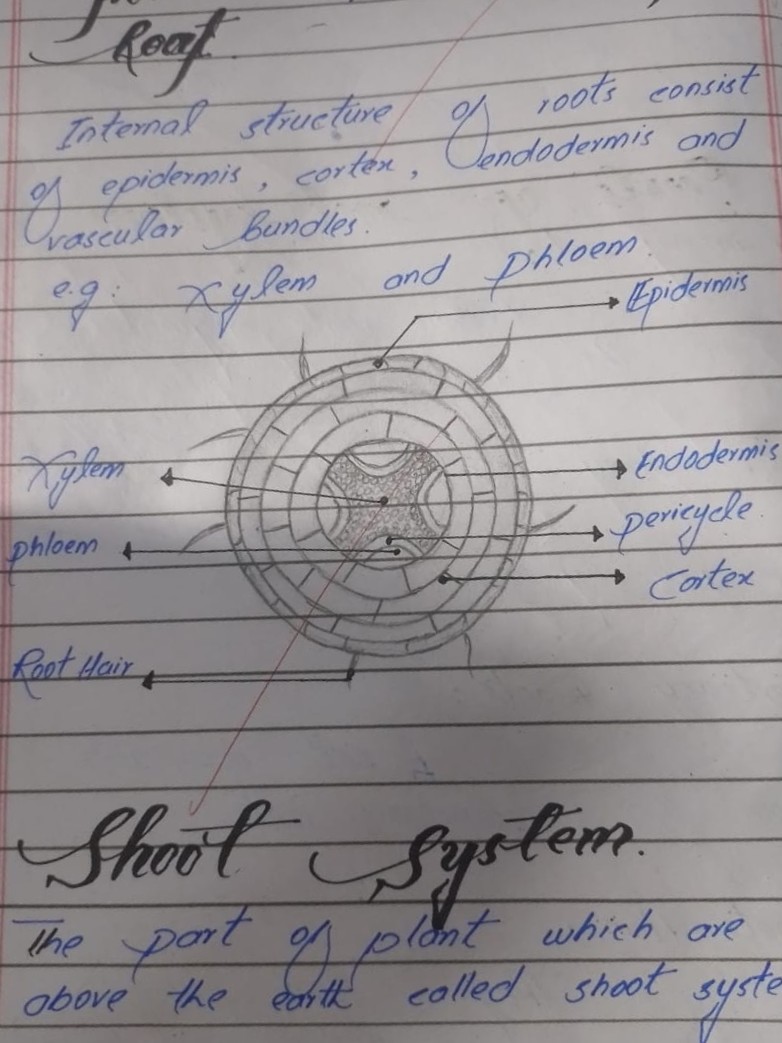 Root.
Internal structure of roots consist
of epidermis, cortex, endodermis and
vascular bundles.
e.g: Xylem and phloem.
Epidermis
Xylem
Endodermis
pericycle
phloem
Cortex
Root Hair
Shoot System.
The part of plant which are
above the earth called shoot syste